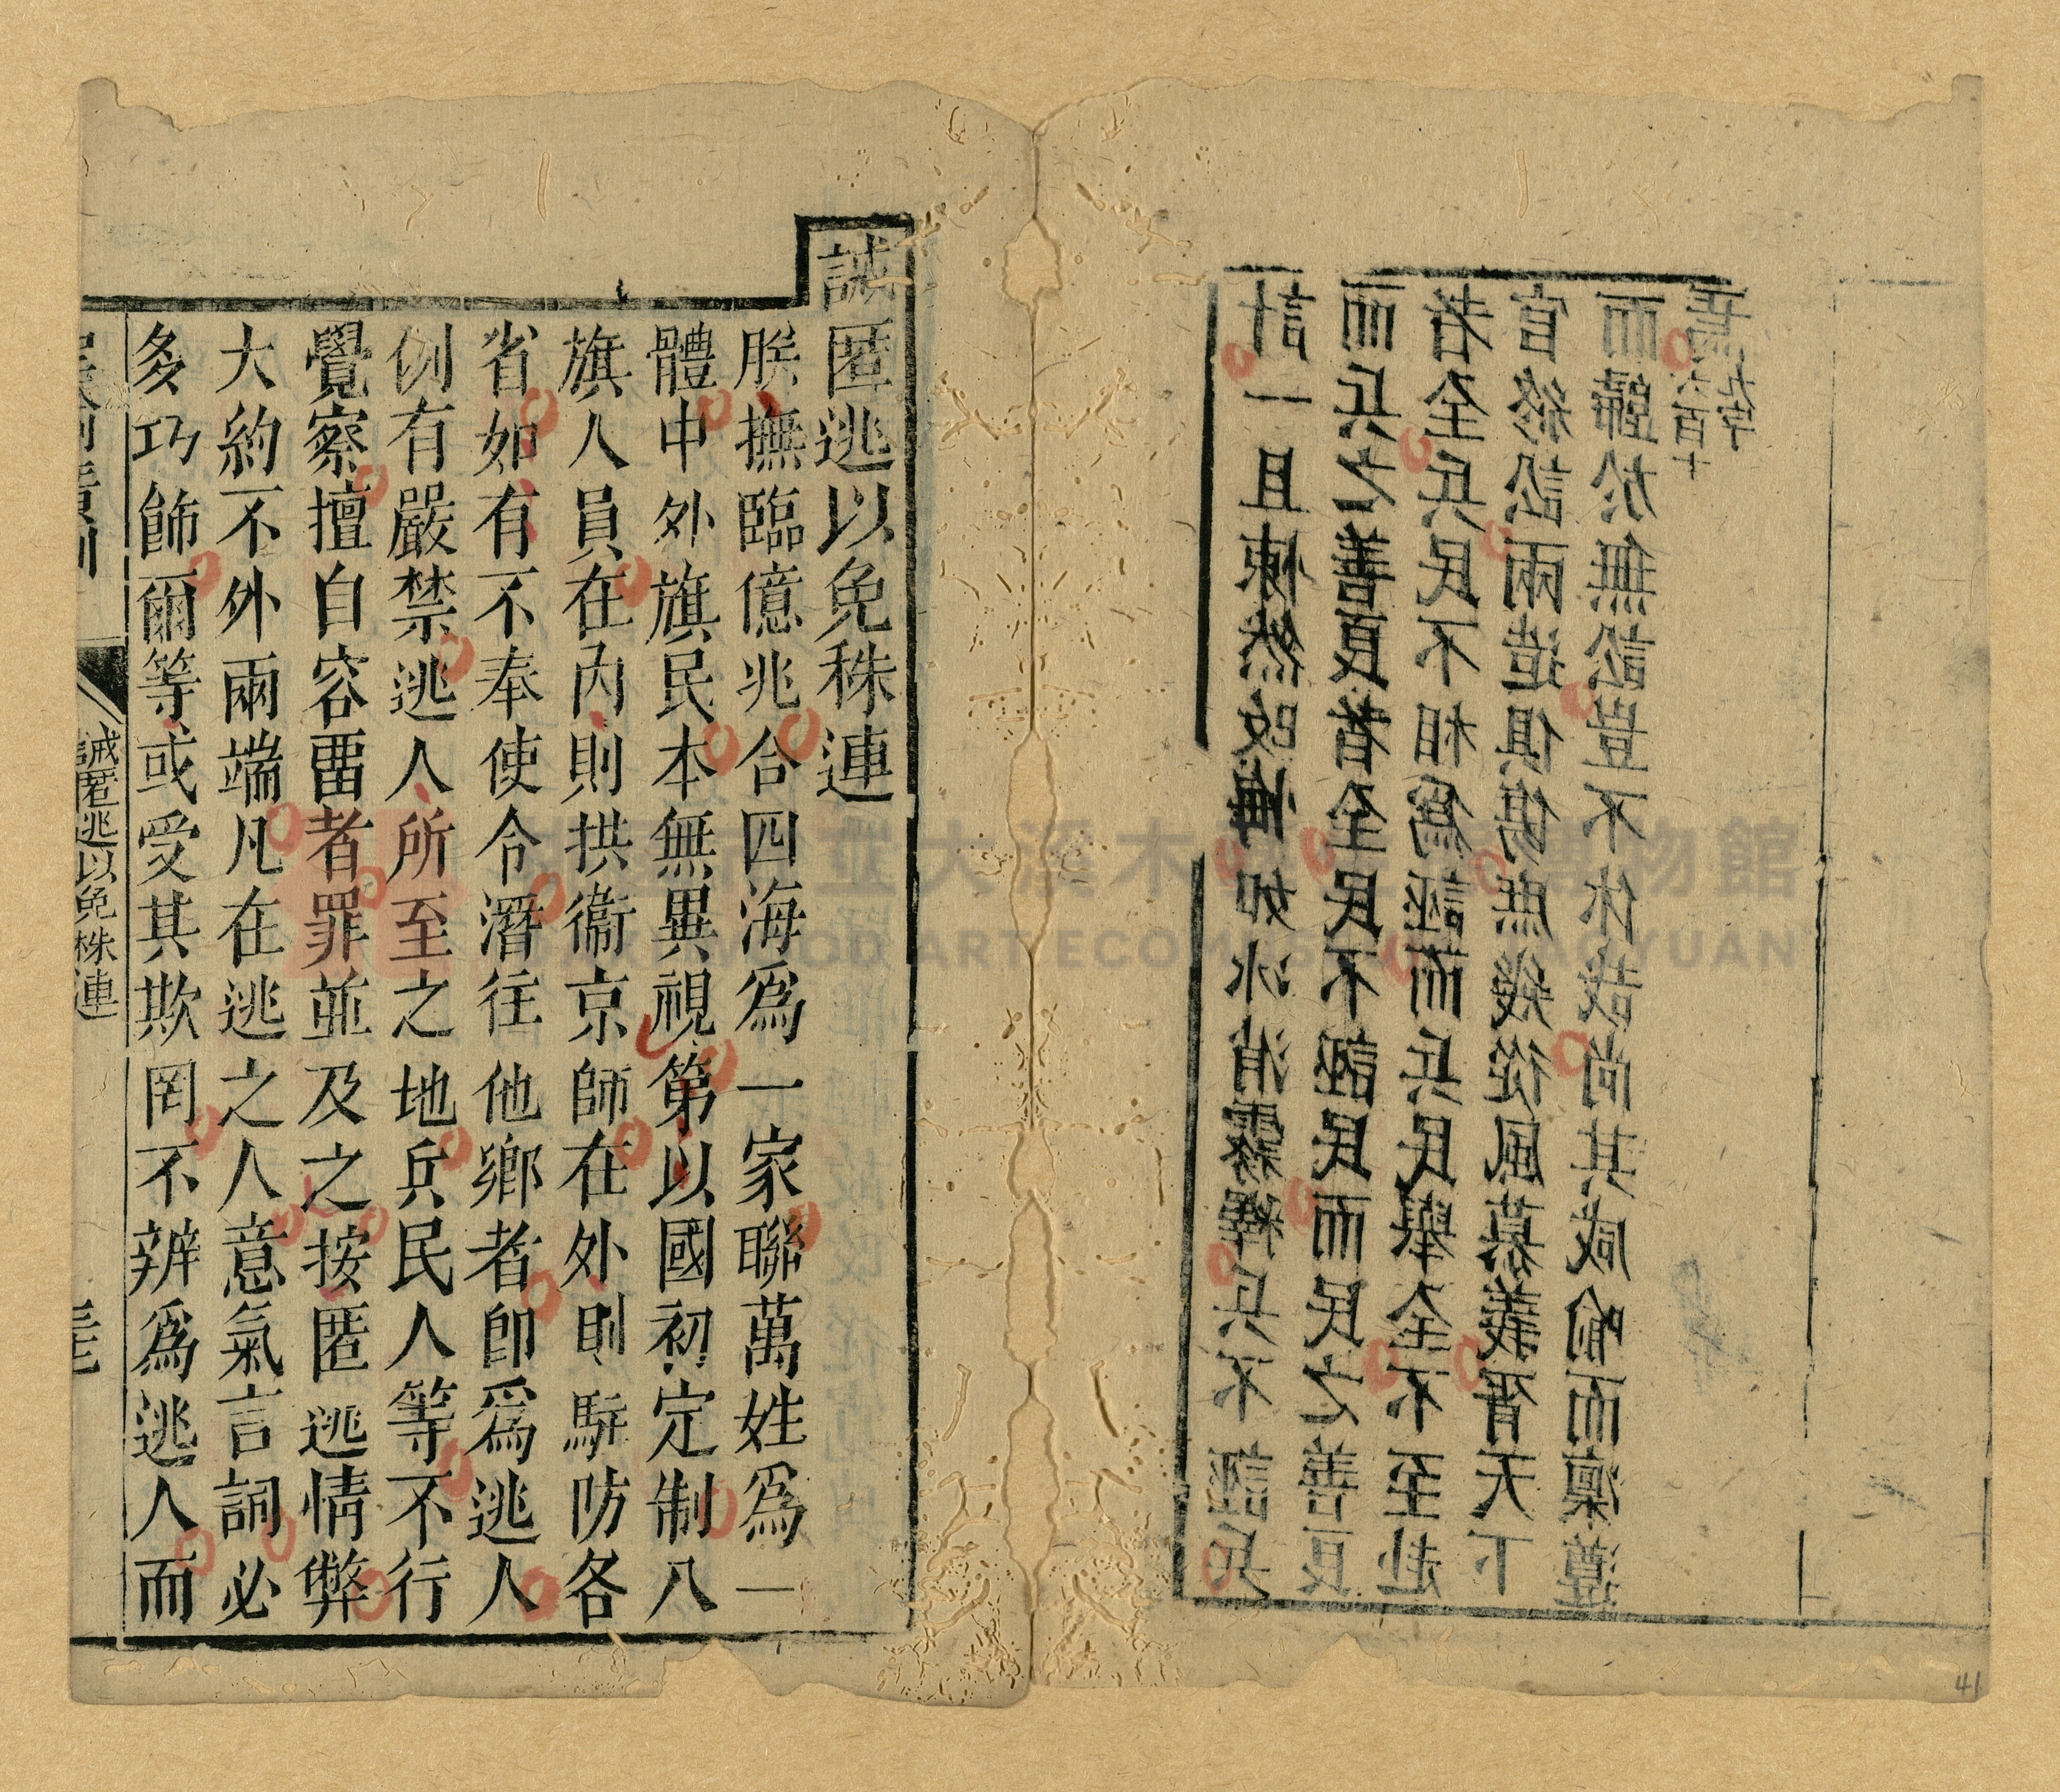 計一旦悚然改悔如冰消霧釋兵不誣兵
而兵之善良者全民不誣民而民之善良
者全兵民不相爲誣而兵民舉全不至赴
官終訟兩造俱傷庶幾從風慕義胥天下
而歸於無訟豈不休哉尚其咸喻而凜遵
焉六百十九字
誡匿逃以免株連
朕撫臨億兆合四海爲一家聯萬姓爲一
體中外旗民本無異視第以國初定制八
旗人員在內則拱衞京師在外則駐防各
省如有不奉使令潛往他鄉者即爲逃人
例有嚴禁逃人所至之地兵民人等不行
覺察擅自容畱者罪並及之按匿逃情弊
大約不外兩端凡在逃之人意氣言詞必
多巧飾爾等或受其欺罔不辨爲逃人而
誡匿逃以免株連
大溪木 博物館
ART ECO
41